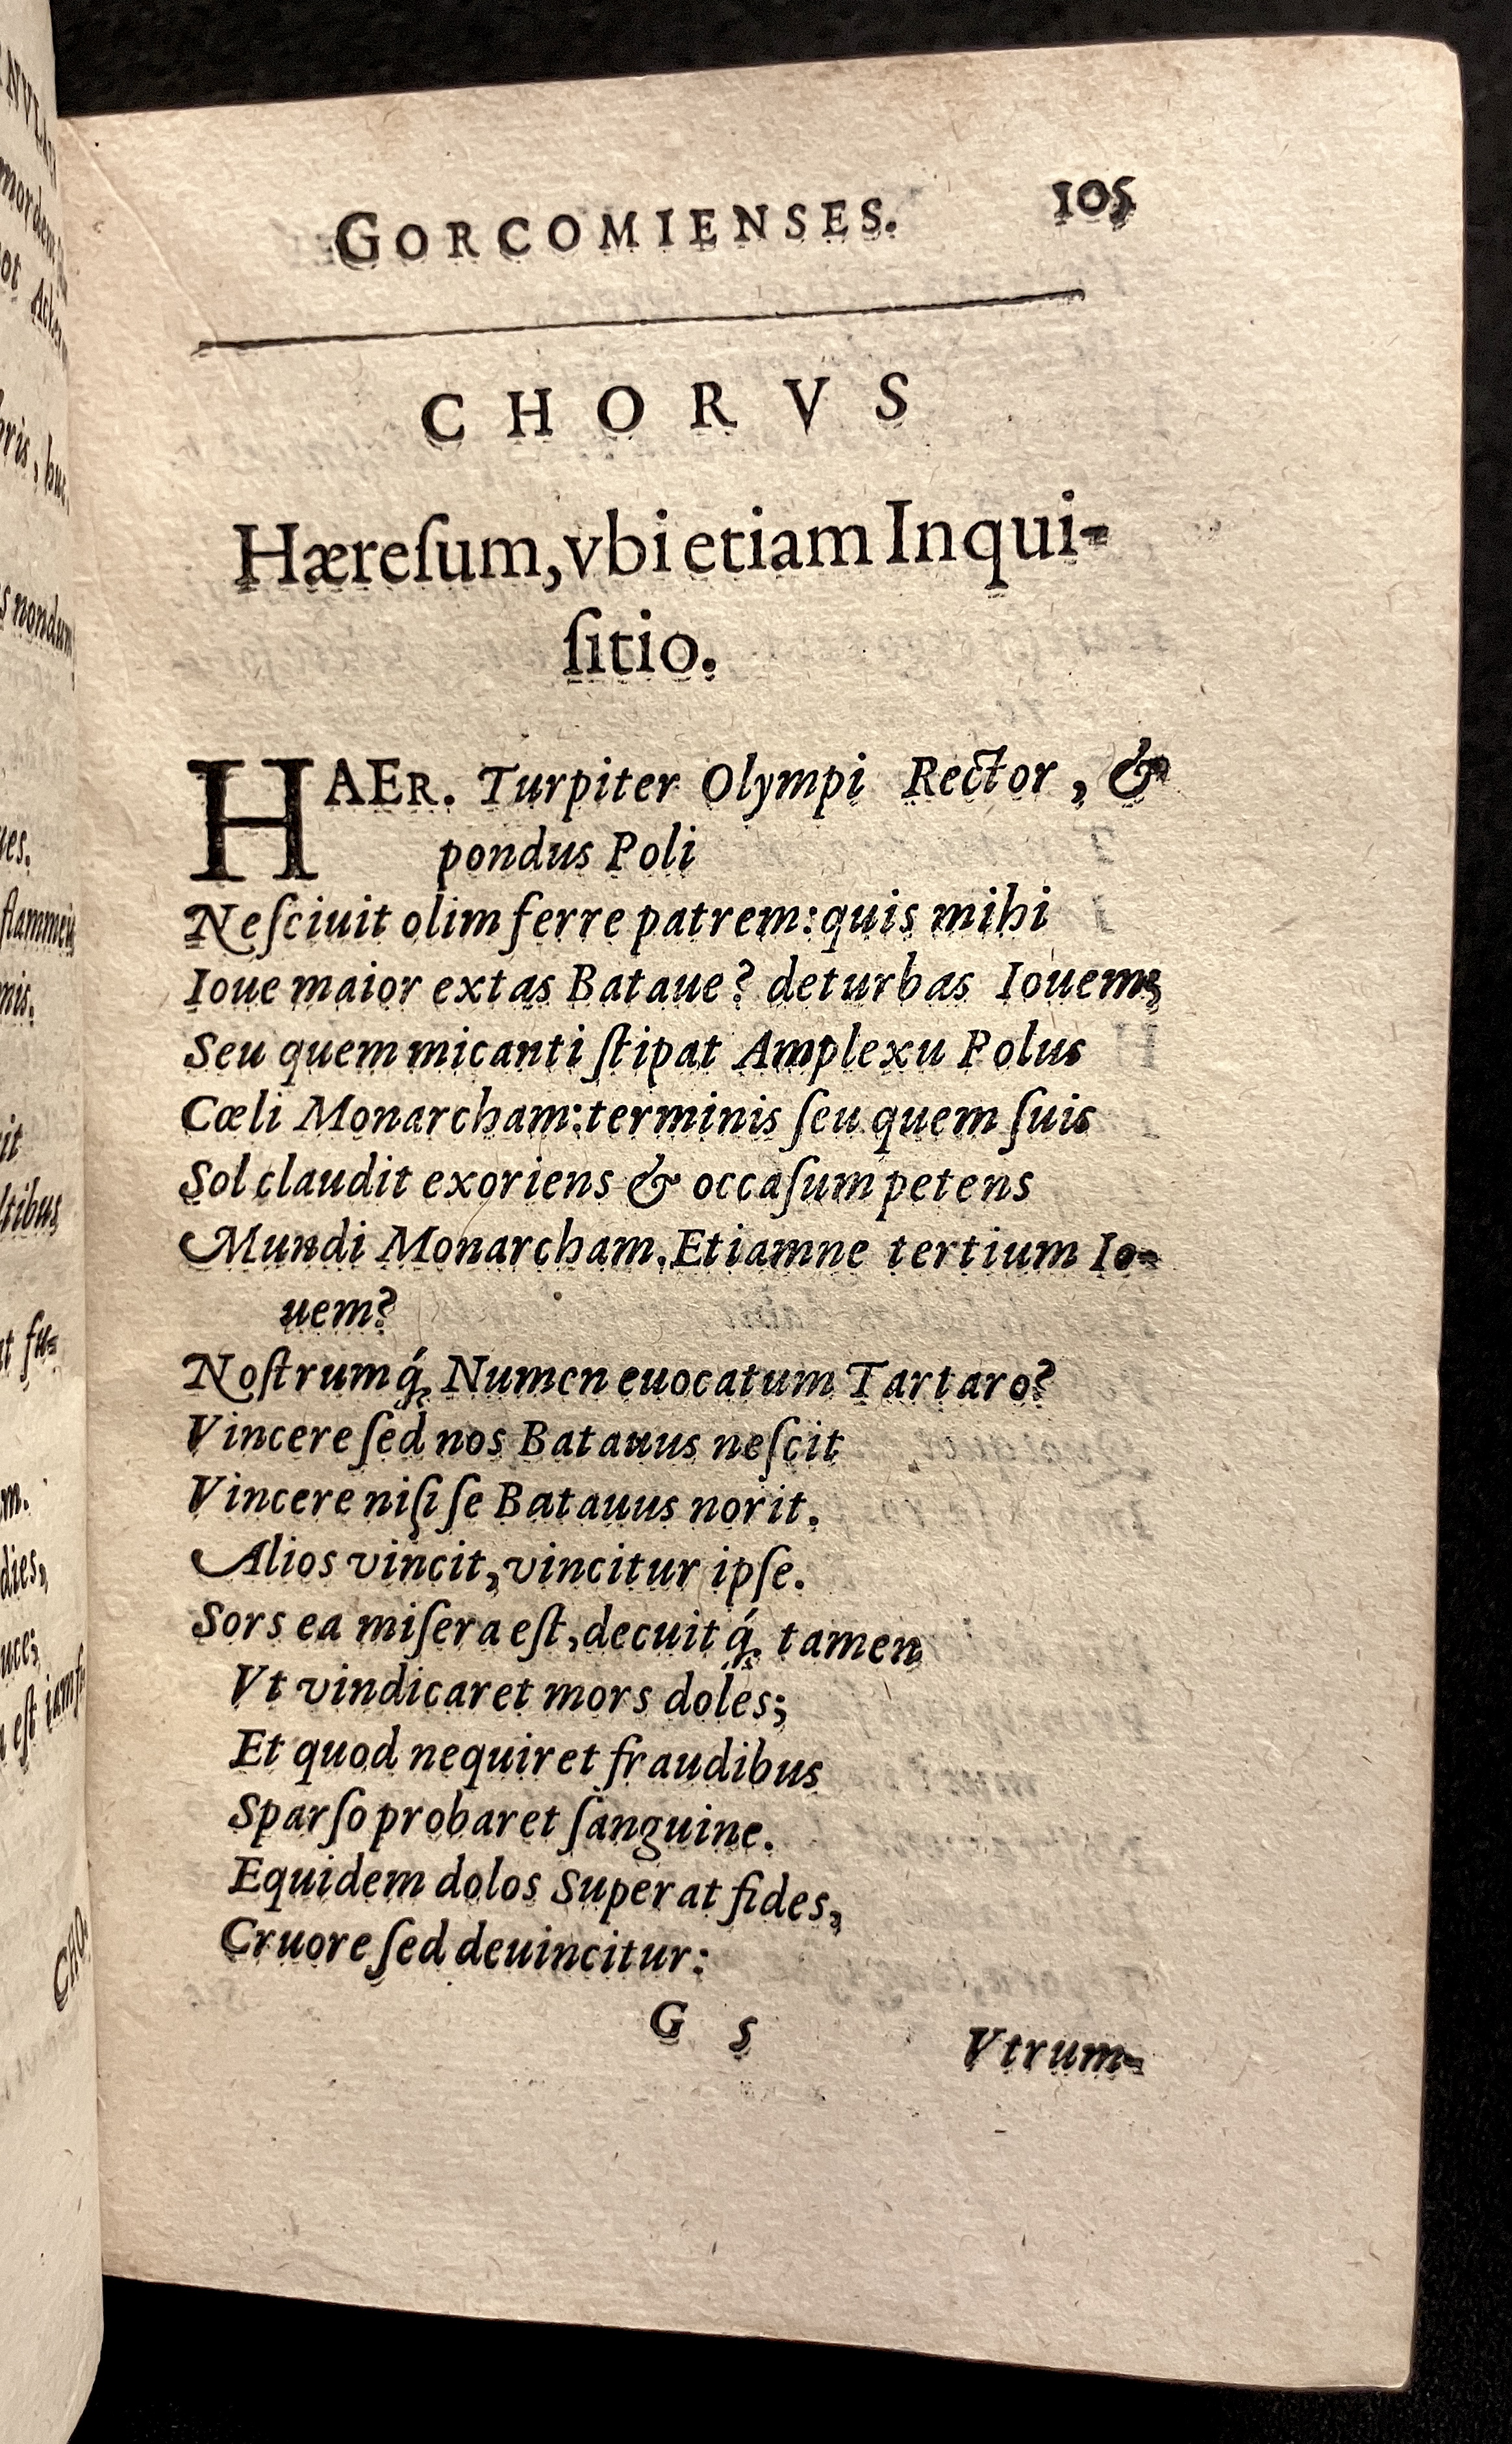 GORCOMIENSES. 105
CHORVS
Hæreſum, vbi etiam Inqui-
ſitio.
HAER. Turpiter Olympi Rector, &
pondus Poli
Neſciuit olim ferre patrem: quis mihi
Ioue maior extas Bataue? deturbas Iouem,
Seu quem micanti ſtipat Amplexu Polus
Cœli Monarcham: terminis ſeu quem ſuis
Sol claudit exoriens & occaſum petens
Mundi Monarcham. Etiamne tertium Io-
uem?
Noſtrumq́; Numen euocatum Tartaro?
Vincere ſed nos Batauus neſcit
Vincere niſi ſe Batauus norit.
Alios vincit, vincitur ipſe.
Sors ea miſera eſt, decuit q́; tamen
Vt vindicaret mors doles;
Et quod nequiret fraudibus
Sparſo probaret ſanguine.
Equidem dolos Superat fides,
Cruore ſed deuincitur:
G 5 Vtrum-